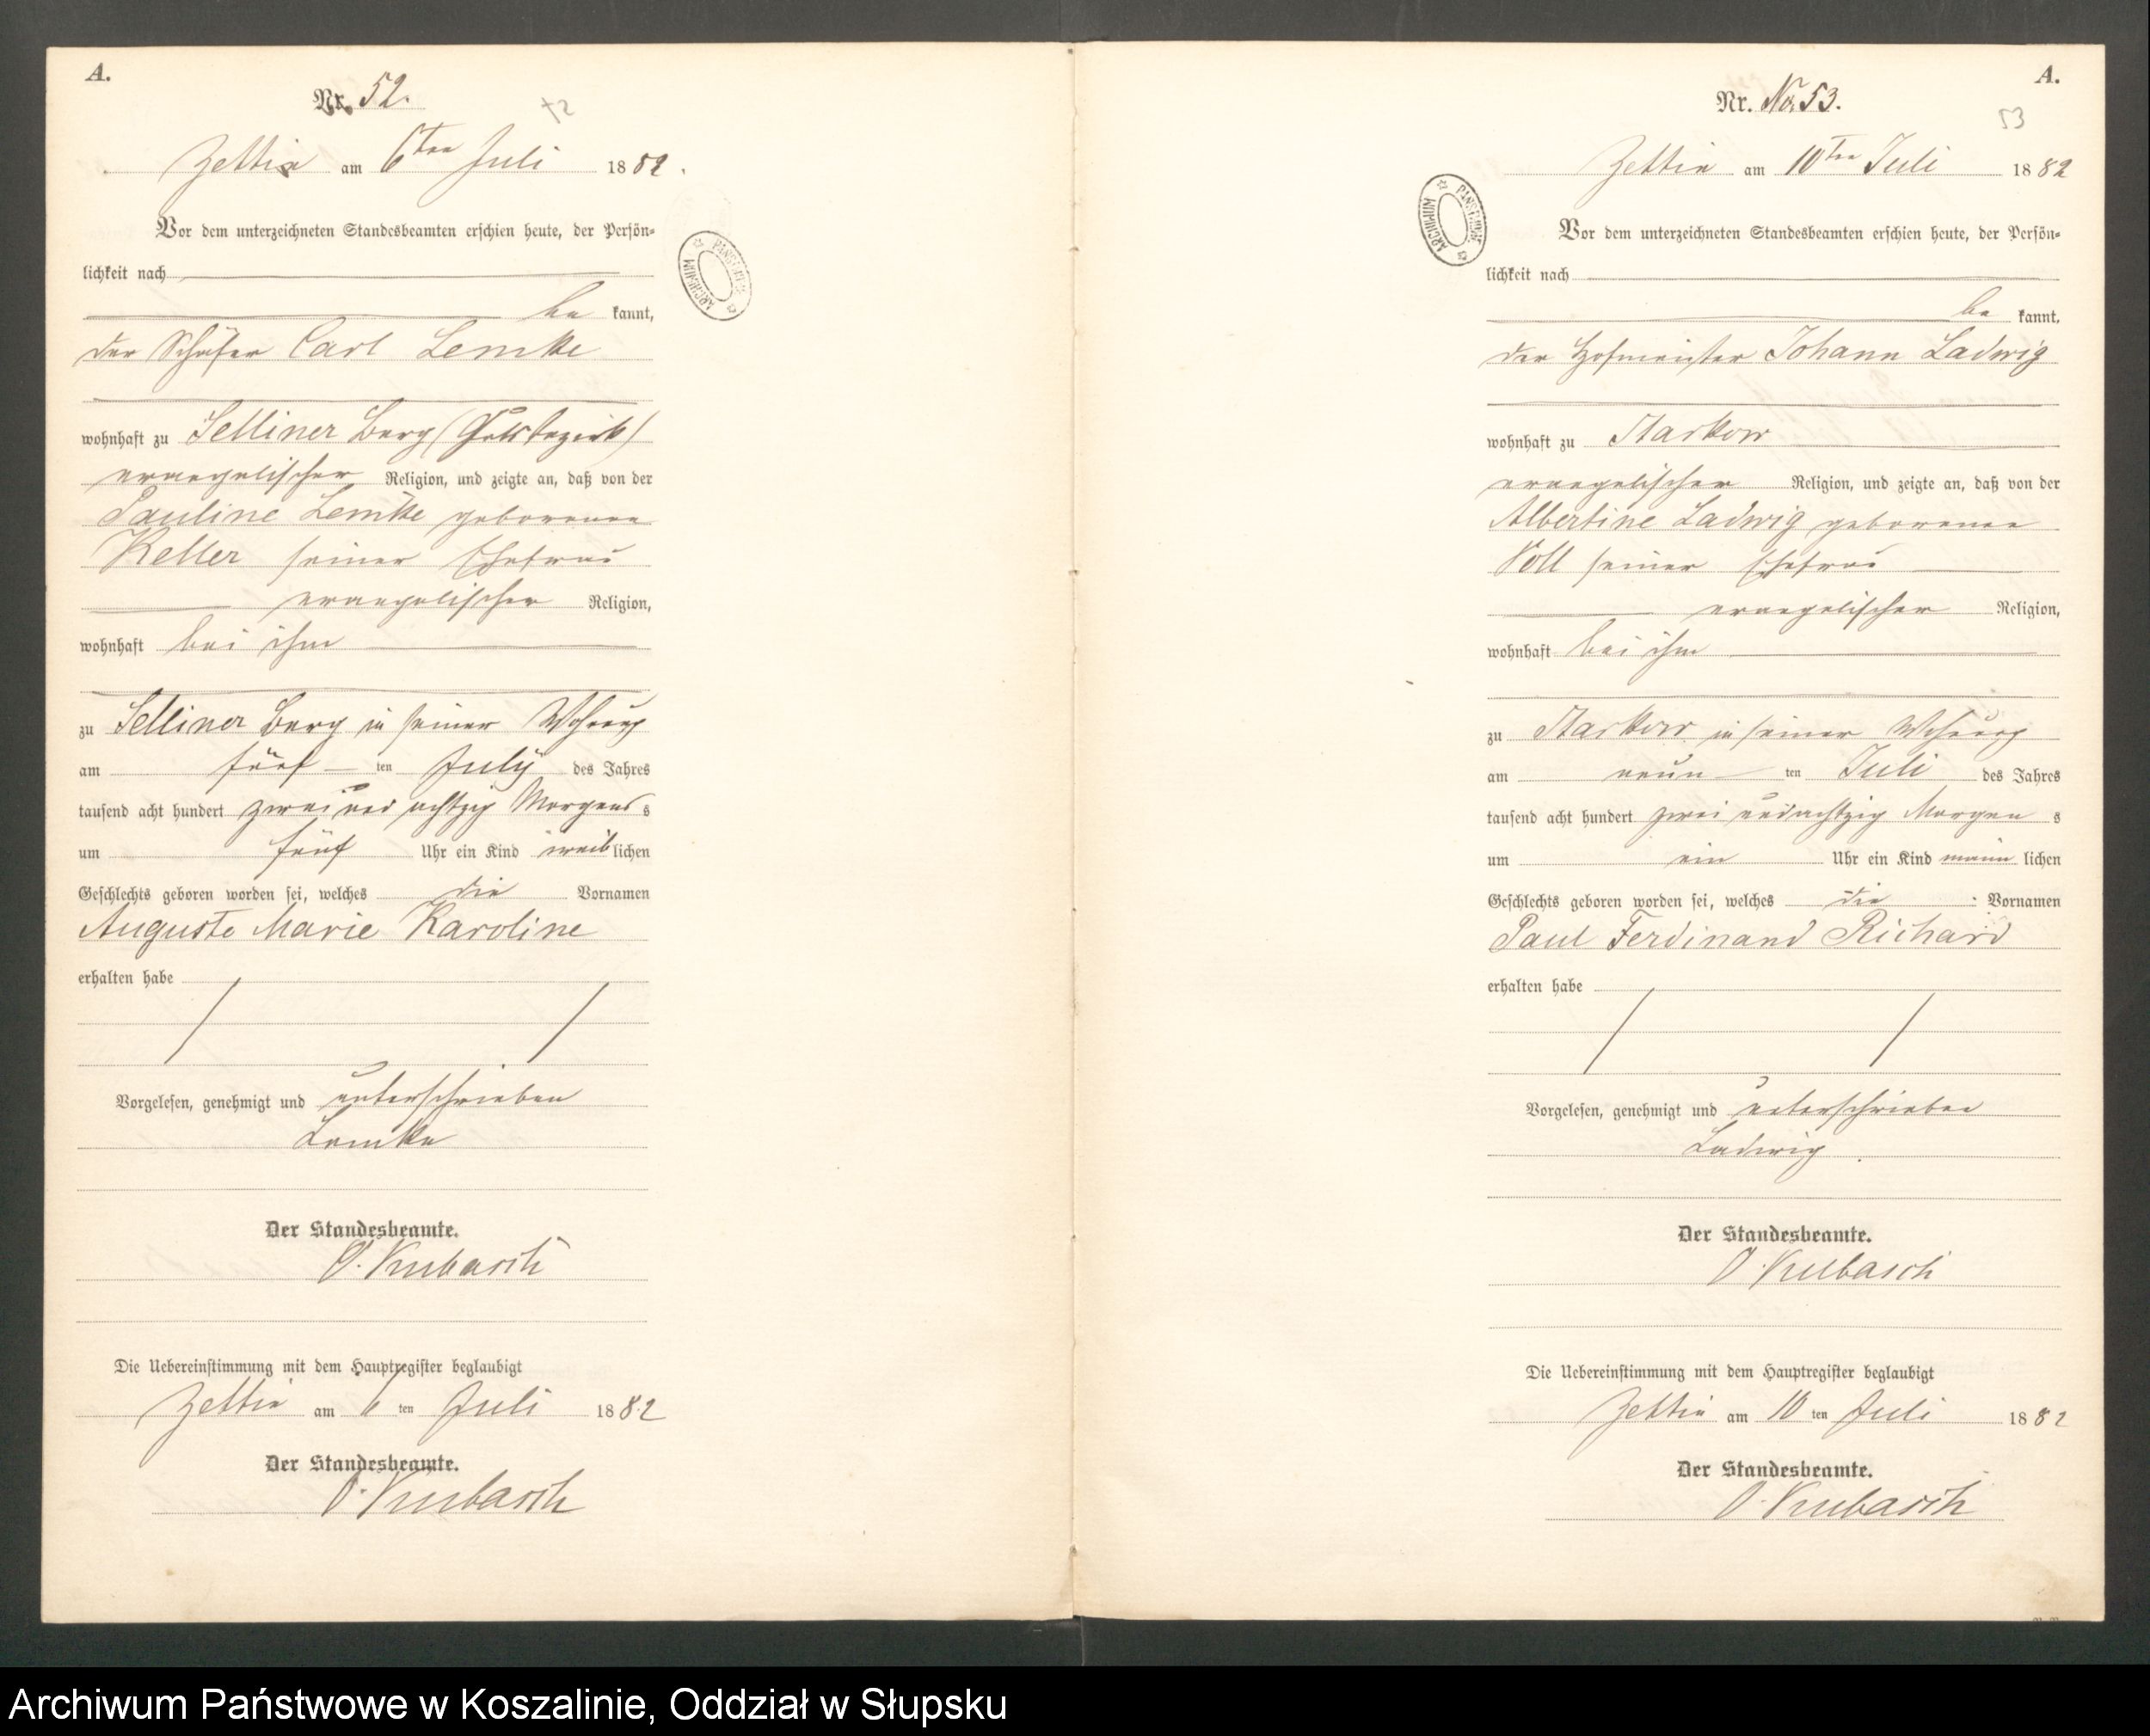 A.
Nr. 52.
52
Zettin am 6ten Juli 1882.
Vor dem unterzeichneten Standesbeamten erschien heute, der Persön-
lichkeit nach
be kannt,
der Schäfer Carl Lemke
wohnhaft zu Selliner Berg (Gutsbezirk)
evangelischer Religion, und zeigte an, daß von der
Pauline Lemke geborenen
Keller seiner Ehefrau
evangelischer Religion,
wohnhaft bei ihm
zu Selliner Berg in seiner Wohnung
am fünf ten July des Jahres
tausend acht hundert zwei und achtzig Morgens s
um fünf Uhr ein Kind weib lichen
Geschlechts geboren worden sei, welches die Vornamen
Auguste Marie Karoline
erhalten habe
Vorgelesen, genehmigt und unterschrieben
Lemke
Der Standesbeamte.
O. Kubasch
Die Uebereinstimmung mit dem Hauptregister beglaubigt
Zettin am 6 ten Juli 1882
Der Standesbeamte.
O. Kubasch
A.
Nr. No. 53.
53
Zettin am 10ten Juli 1882
Vor dem unterzeichneten Standesbeamten erschien heute, der Persön-
lichkeit nach
be kannt,
der Hofmeister Johann Ladwig
wohnhaft zu Starkow
evangelischer Religion, und zeigte an, daß von der
Albertine Ladwig geborenen
Voll seiner Ehefrau
evangelischer Religion,
wohnhaft bei ihm
zu Starkow in seiner Wohnung
am neun ten Juli des Jahres
tausend acht hundert zwei und achtzig Morgen s
um ein Uhr ein Kind männ lichen
Geschlechts geboren worden sei, welches die Vornamen
Paul Ferdinand Richard
erhalten habe
Vorgelesen, genehmigt und unterschrieben
Ladwig
Der Standesbeamte.
O. Kubasch
Die Uebereinstimmung mit dem Hauptregister beglaubigt
Zettin am 10 ten Juli 1882
Der Standesbeamte.
O. Kubasch
ARCHIWUM PAŃSTWOW
ARCHIWUM PAŃSTWOW
Archiwum Państwowe w Koszalinie, Oddział w Słupsku